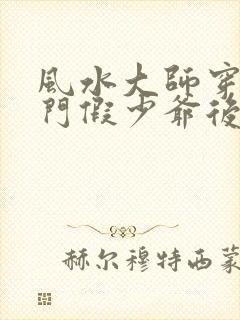 風水大師穿
門假少爺後
赫尔穆特西蒙